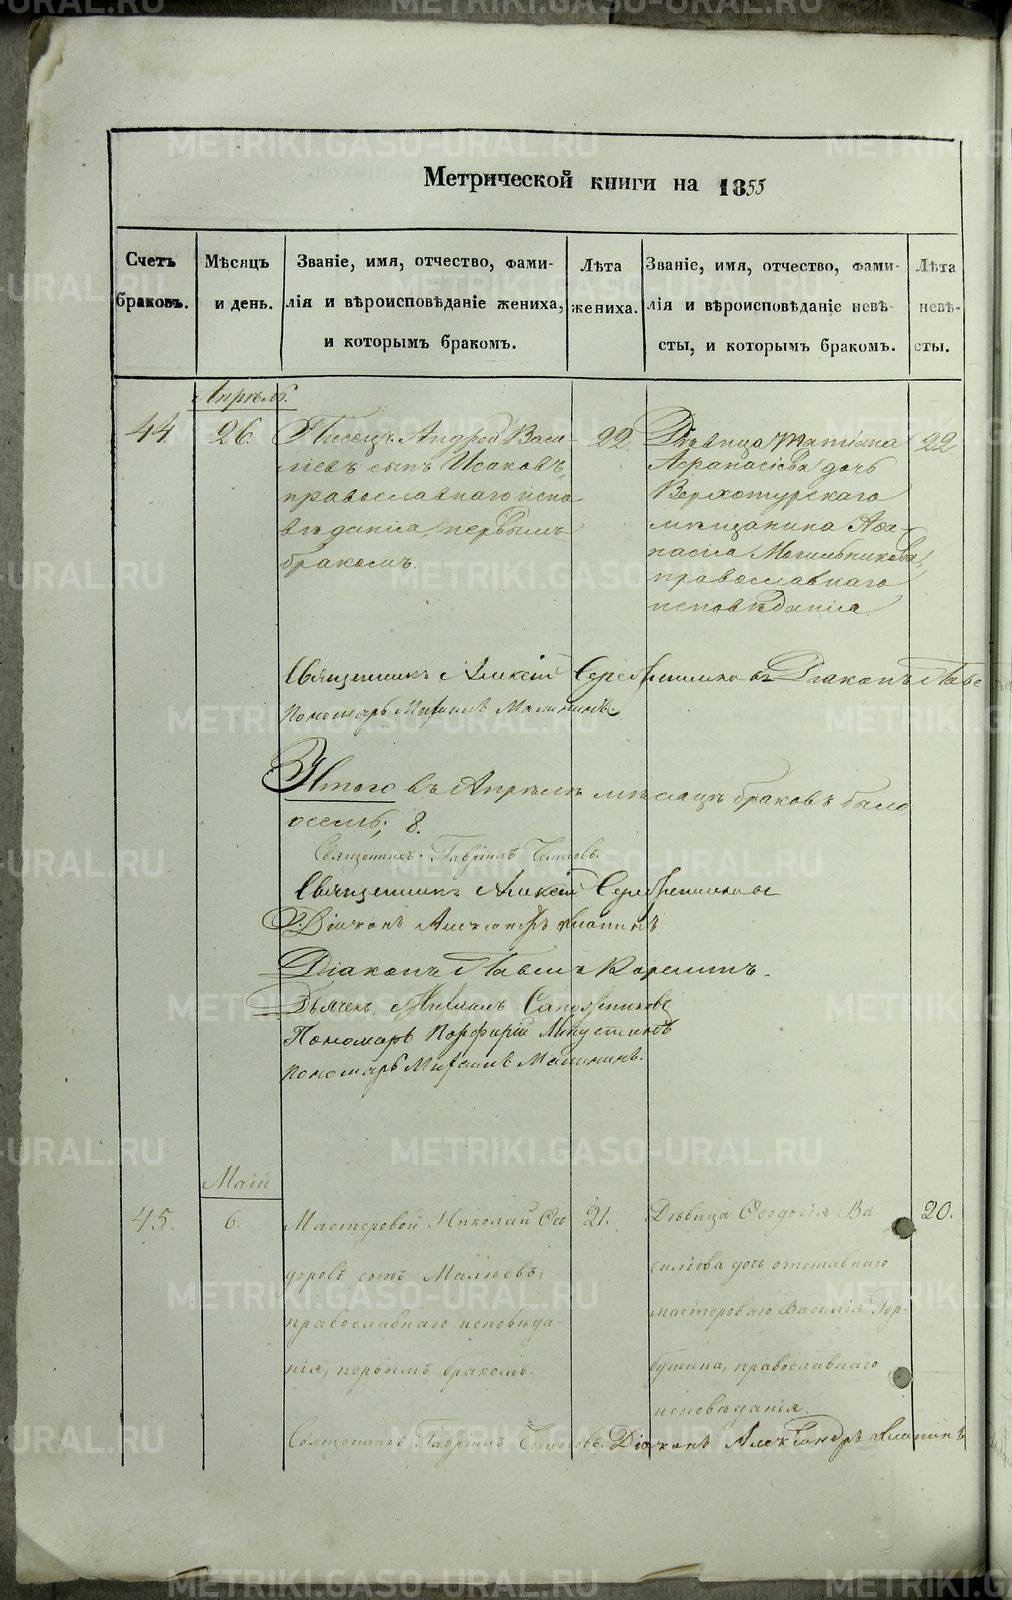 METRIKI.GASO-URAL.RU
Метрической книги на 1855
Счетъ браковъ.
Мѣсяцъ и день.
Званіе, имя, отчество, фами-
лія и вѣроисповѣданіе жениха,
и которымъ бракомъ.
Лѣта жениха.
Званіе, имя, отчество, фами-
лія и вѣроисповѣданіе невѣ-
сты, и которымъ бракомъ.
Лѣта невѣ-
сты.
Апрѣль.
44. 26.
Писецъ Андрей Васи-
ліевъ сынъ Исаковъ,
православнаго испо
вѣданія, первымъ
бракомъ.
22.
Дѣвица Татіана
Аѳанасіева дочь
Верхотурскаго
мѣщанина Аѳа-
насія Могильникова,
православнаго
исповѣданія
22
Священникъ Алексій Серебренниковъ Діаконъ Паве
Пономарь Михаилъ Малининъ
Итого въ Апрѣлѣ мѣсяцѣ браковъ было
осемь, 8.
Священникъ Гавріилъ
Священникъ Алексій Серебренниковъ
Діаконъ Александръ Хлопинъ
Діаконъ Павелъ Корелинъ.
Дьячекъ Михаилъ Сапожниковъ
Пономарь Порфирій
Пономарь Михаилъ Малининъ.
Маій
45. 6.
Мастеровой Николай Ѳео
доровъ сынъ
православнаго исповѣда-
нія, первымъ бракомъ.
21.
Дѣвица Ѳеодосія Ва
силіева дочь отставнаго
мастероваго Василія Гор-
бунина, православнаго
исповѣданія.
20.
Священникъ Гавріилъ Діаконъ Александръ Хлопинъ